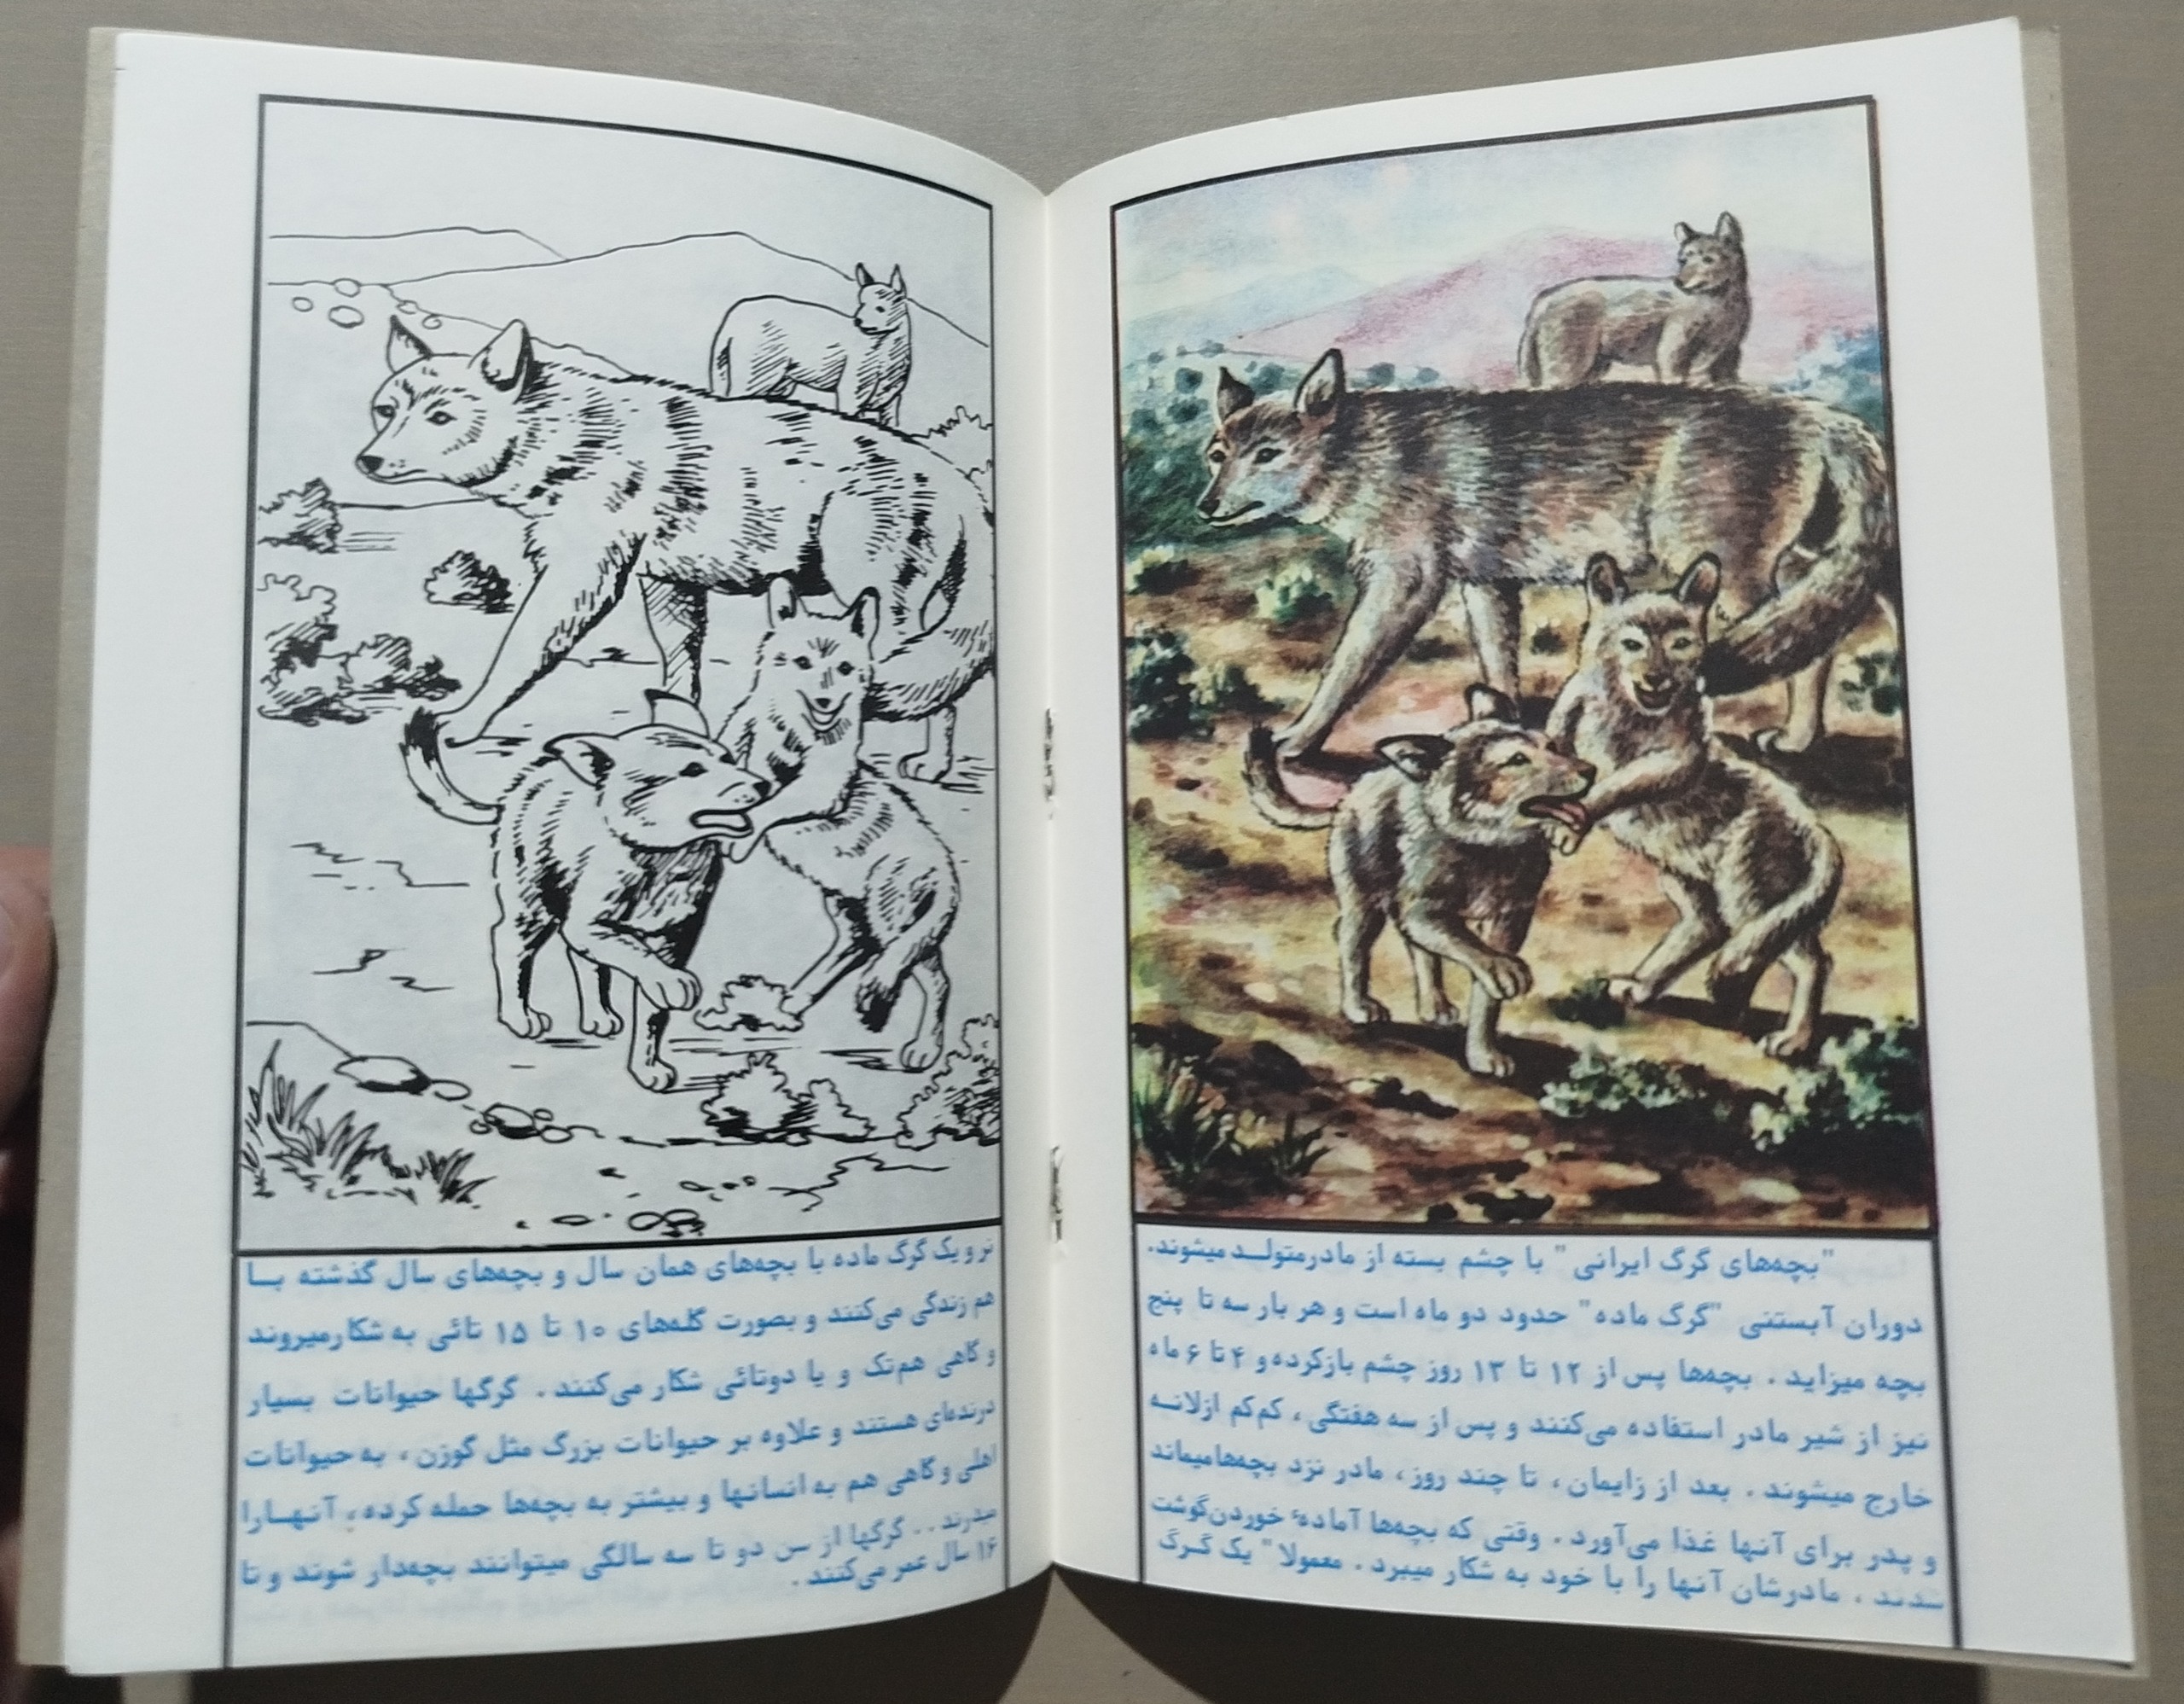 "بچه‌های گرگ ایرانی" با چشم بسته از مادرمتولد میشوند.
دوران آبستنی "گرگ ماده" حدود دو ماه است و هر بار سه تا پنج
بچه میزاید . بچه‌ها پس از ۱۲ تا ۱۳ روز چشم بازکرده و ۴ تا ۶ ماه
نیز از شیر مادر استفاده می‌کنند و پس از سه هفتگی ، کم‌کم ازلانه
خارج میشوند . بعد از زایمان ، تا چند روز ، مادر نزد بچه‌هامیماند
و پدر برای آنها غذا می‌آورد . وقتی که بچه‌ها آمادهٔ خوردن‌گوشت
شدند ، مادرشان آنها را با خود به شکار میبرد . معمولا" یک گرگ
نر و یک گرگ ماده با بچه‌های همان سال و بچه‌های سال گذشته با
هم زندگی می‌کنند و بصورت گله‌های ۱۰ تا ۱۵ تائی به شکارمیروند
و گاهی هم‌تک و یا دوتائی شکار می‌کنند . گرگها حیوانات بسیار
درنده‌ای هستند و علاوه بر حیوانات بزرگ مثل گوزن ، به حیوانات
اهلی و گاهی هم به انسانها و بیشتر به بچه‌ها حمله کرده ، آنهارا
میدرند . . گرگها از سن دو تا سه سالگی میتوانند بچه‌دار شوند و تا
۱۶ سال عمر می‌کنند .